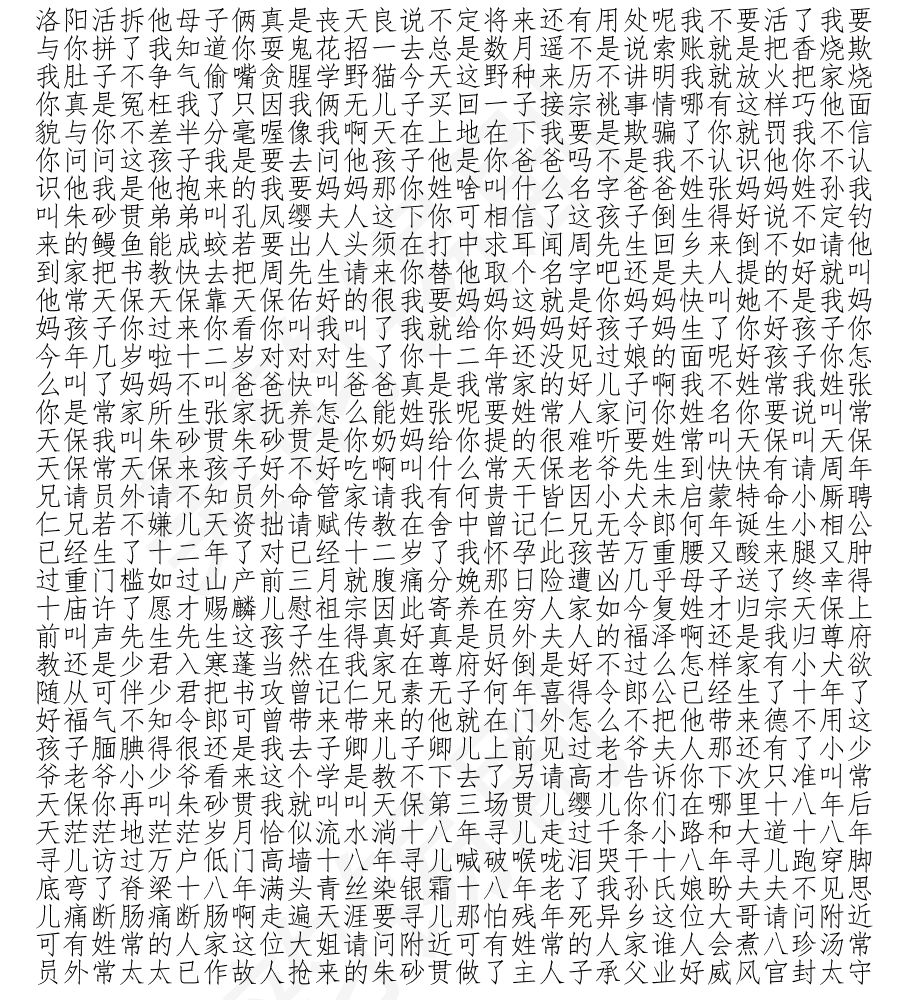 洛阳活拆他母子俩真是丧天良说不定将来还有用处呢我不要活了我要
与你拼了我知道你耍鬼花招一去总是数月遥不是说索账就是把香烧欺
我肚子不争气偷嘴贪腥学野猫今天这野种来历不讲明我就放火把家烧
你真是冤枉我了只因我俩无儿子买回一子接宗祧事情哪有这样巧他面
貌与你不差半分毫喔像我啊天在上地在下我要是欺骗了你就罚我不信
你问问这孩子我是要去问他孩子他是你爸爸吗不是我不认识他你不认
识他我是他抱来的我要妈妈那你姓啥叫什么名字爸爸姓张妈妈姓孙我
叫朱砂贯弟弟叫孔凤缨夫人这下你可相信了这孩子倒生得好说不定钓
来的鳗鱼能成蛟若要出人头须在打中求耳闻周先生回乡来倒不如请他
到家把书教快去把周先生请来你替他取个名字吧还是夫人提的好就叫
他常天保天保靠天保佑好的很我要妈妈这就是你妈妈快叫她不是我妈
妈孩子你过来你看你叫我叫了我就给你妈妈好孩子妈生了你好孩子你
今年几岁啦十二岁对对对生了你十二年还没见过娘的面呢好孩子你怎
么叫了妈妈不叫爸爸快叫爸爸真是我常家的好儿子啊我不姓常我姓张
你是常家所生张家抚养怎么能姓张呢要姓常人家问你姓名你要说叫常
天保我叫朱砂贯朱砂贯是你奶妈给你提的很难听要姓常叫天保叫天保
天保常天保来孩子好不好吃啊叫什么常天保老爷先生到快快有请周年
兄请员外请不知员外命管家请我有何贵干皆因小犬未启蒙特命小厮聘
仁兄若不嫌儿天资拙请赋传教在舍中曾记仁兄无令郎何年诞生小相公
已经生了十二年了对已经十二岁了我怀孕此孩苦万重腰又酸来腿又肿
过重门槛如过山产前三月就腹痛分娩那日险遭凶几乎母子送了终幸得
十庙许了愿才赐麟儿慰祖宗因此寄养在穷人家如今复姓才归宗天保上
前叫声先生先生这孩子生得真好真是员外夫人的福泽啊还是我归尊府
教还是少君入寒蓬当然在我家在尊府好倒是好不过么怎样家有小犬欲
随从可伴少君把书攻曾记仁兄素无子何年喜得令郎公已经生了十年了
好福气不知令郎可曾带来带来的他就在门外怎么不把他带来德不用这
孩子腼腆得很还是我去子卿儿子卿儿上前见过老爷夫人那还有了小少
爷老爷小少爷看来这个学是教不下去了另请高才告诉你下次只准叫常
天保你再叫朱砂贯我就叫叫天保第三场贯儿缨儿你们在哪里十八年后
天茫茫地茫茫岁月恰似流水淌十八年寻儿走过千条小路和大道十八年
寻儿访过万户低门高墙十八年寻儿喊破喉咙泪哭干十八年寻儿跑穿脚
底弯了脊梁十八年满头青丝染银霜十八年老了我孙氏娘盼夫夫不见思
儿痛断肠痛断肠啊走遍天涯要寻儿那怕残年死异乡这位大哥请问附近
可有姓常的人家这位大姐请问附近可有姓常的人家谁人会煮八珍汤常
员外常太太已作故人抢来的朱砂贯做了主人子承父业好威风官封太守